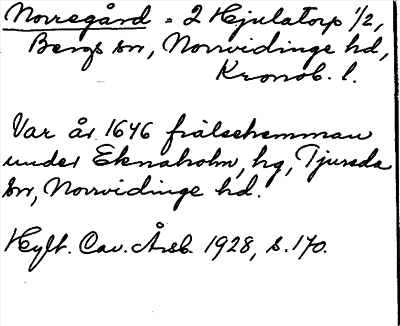 Norregård = 2 Hjulatorp 1/2,
Bergs sn, Norrvidinge hd,
Kronob. l.
Var år 1646 frälsehemman
under Eknaholm, hg, Tjureda
sn, Norrvidinge hd.
Hylt. Cav. Årsb. 1928, s. 170.